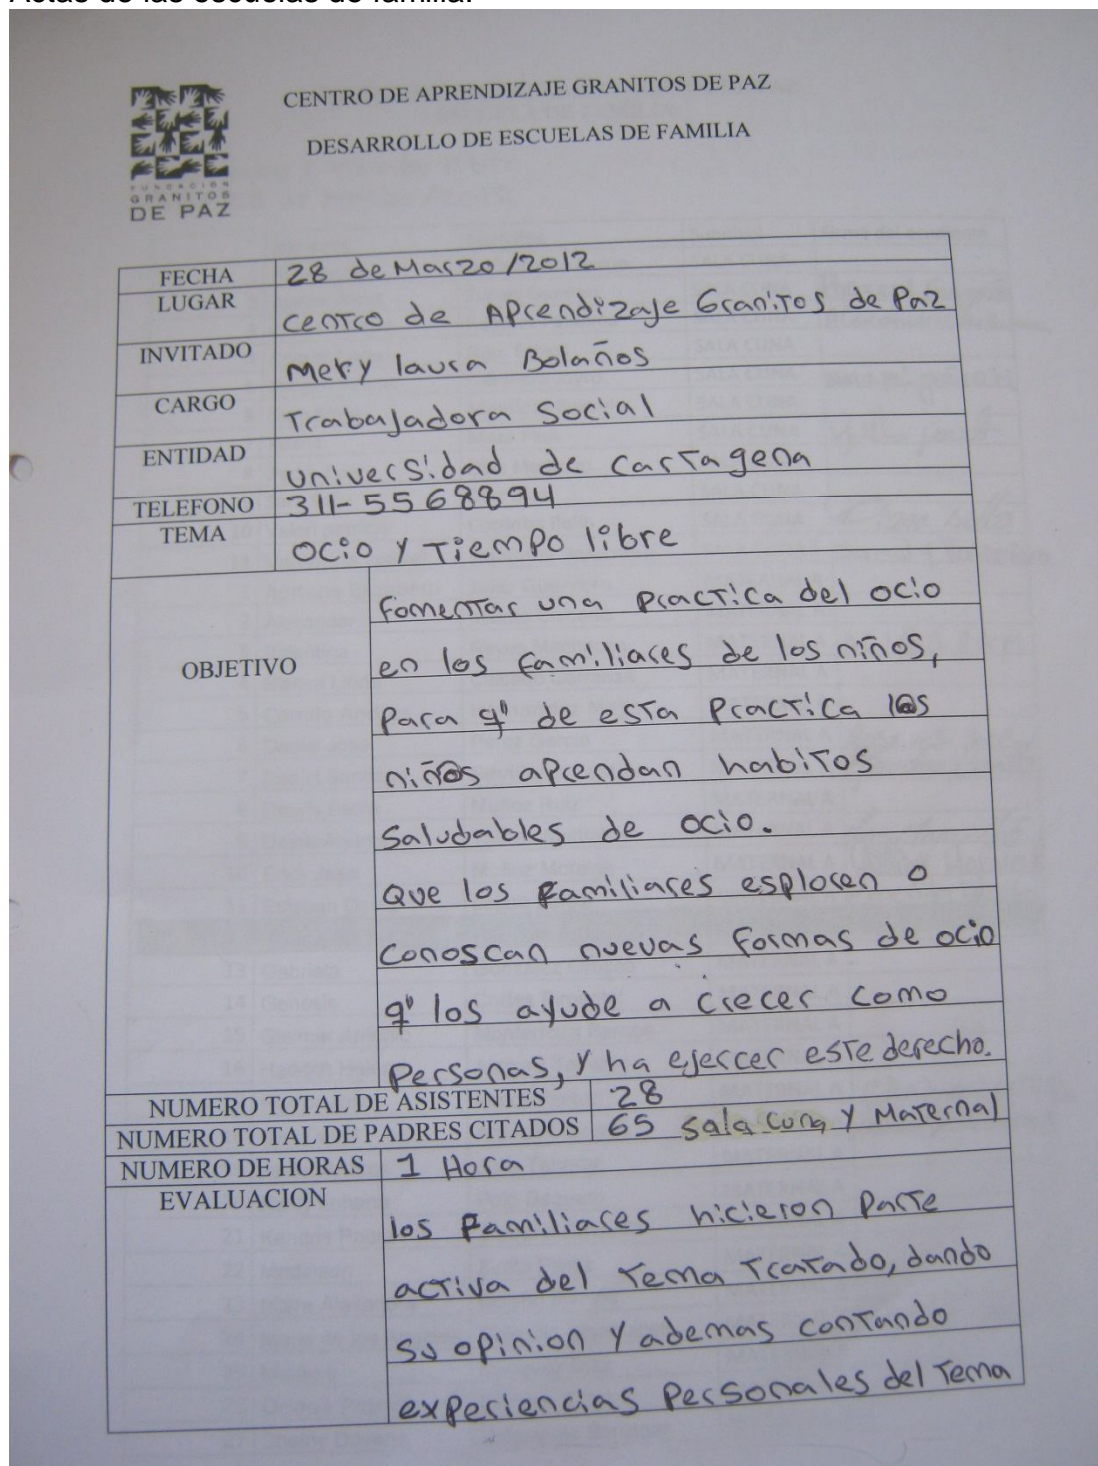 Actas de las escuelas de familia:
CENTRO DE APRENDIZAJE GRANITOS DE PAZ
DESARROLLO DE ESCUELAS DE FAMILIA
FUNDACION
GRANITOS
DE PAZ
FECHA 28 de Marzo/2012
LUGAR Centro de Aprendizaje Granitos de Paz
INVITADO Mery laura Bolaños
CARGO Trabajadora Social
ENTIDAD universidad de cartagena
TELEFONO 311-5568894
TEMA Ocio y Tiempo libre
OBJETIVO
Fomentar una practica del ocio
en los familiares de los niños,
para q' de esta practica los
niños aprendan habitos
Saludables de ocio.
Que los familiares esploren o
conoscan nuevas formas de ocio
q' los ayude a crecer como
Personas, y ha ejercer este derecho.
NUMERO TOTAL DE ASISTENTES 28
NUMERO TOTAL DE PADRES CITADOS 65 Sala cuna y Maternal
NUMERO DE HORAS 1 Hora
EVALUACION
los familiares hicieron parte
activa del tema tratado, dando
su opinion y ademas contando
experiencias personales del tema